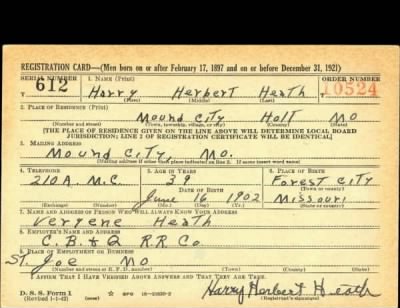 REGISTRATION CARD—(Men born on or after February 17, 1897 and on or before December 31, 1921)
SERIAL NUMBER 1. NAME (Print) ORDER NUMBER
T 612 Harry Herbert Heath T 10524
(First) (Middle) (Last)
2. PLACE OF RESIDENCE (Print)
Mound City Holt Mo
(Number and street) (Town, township, village, or city) (County) (State)
[THE PLACE OF RESIDENCE GIVEN ON THE LINE ABOVE WILL DETERMINE LOCAL BOARD
JURISDICTION; LINE 2 OF REGISTRATION CERTIFICATE WILL BE IDENTICAL]
3. MAILING ADDRESS
Mound City, Mo.
[Mailing address if other than place indicated on line 2. If same insert word same]
4. TELEPHONE 5. AGE IN YEARS 6. PLACE OF BIRTH
210A. M.C. 39 Forest City
DATE OF BIRTH (Town or county)
June 16 1902 Missouri
(Mo.) (Day) (Yr.) (State or country)
7. NAME AND ADDRESS OF PERSON WHO WILL ALWAYS KNOW YOUR ADDRESS
Vergene Heath
8. EMPLOYER'S NAME AND ADDRESS
C. B. & Q R.R. Co
9. PLACE OF EMPLOYMENT OR BUSINESS
St. Joe Mo
(Number and street or R. F. D. number) (Town) (County) (State)
I AFFIRM THAT I HAVE VERIFIED ABOVE ANSWERS AND THAT THEY ARE TRUE.
D. S. S. Form 1 Harry Herbert Heath
(Revised 1-1-42) (over) GPO (Registrant's signature)